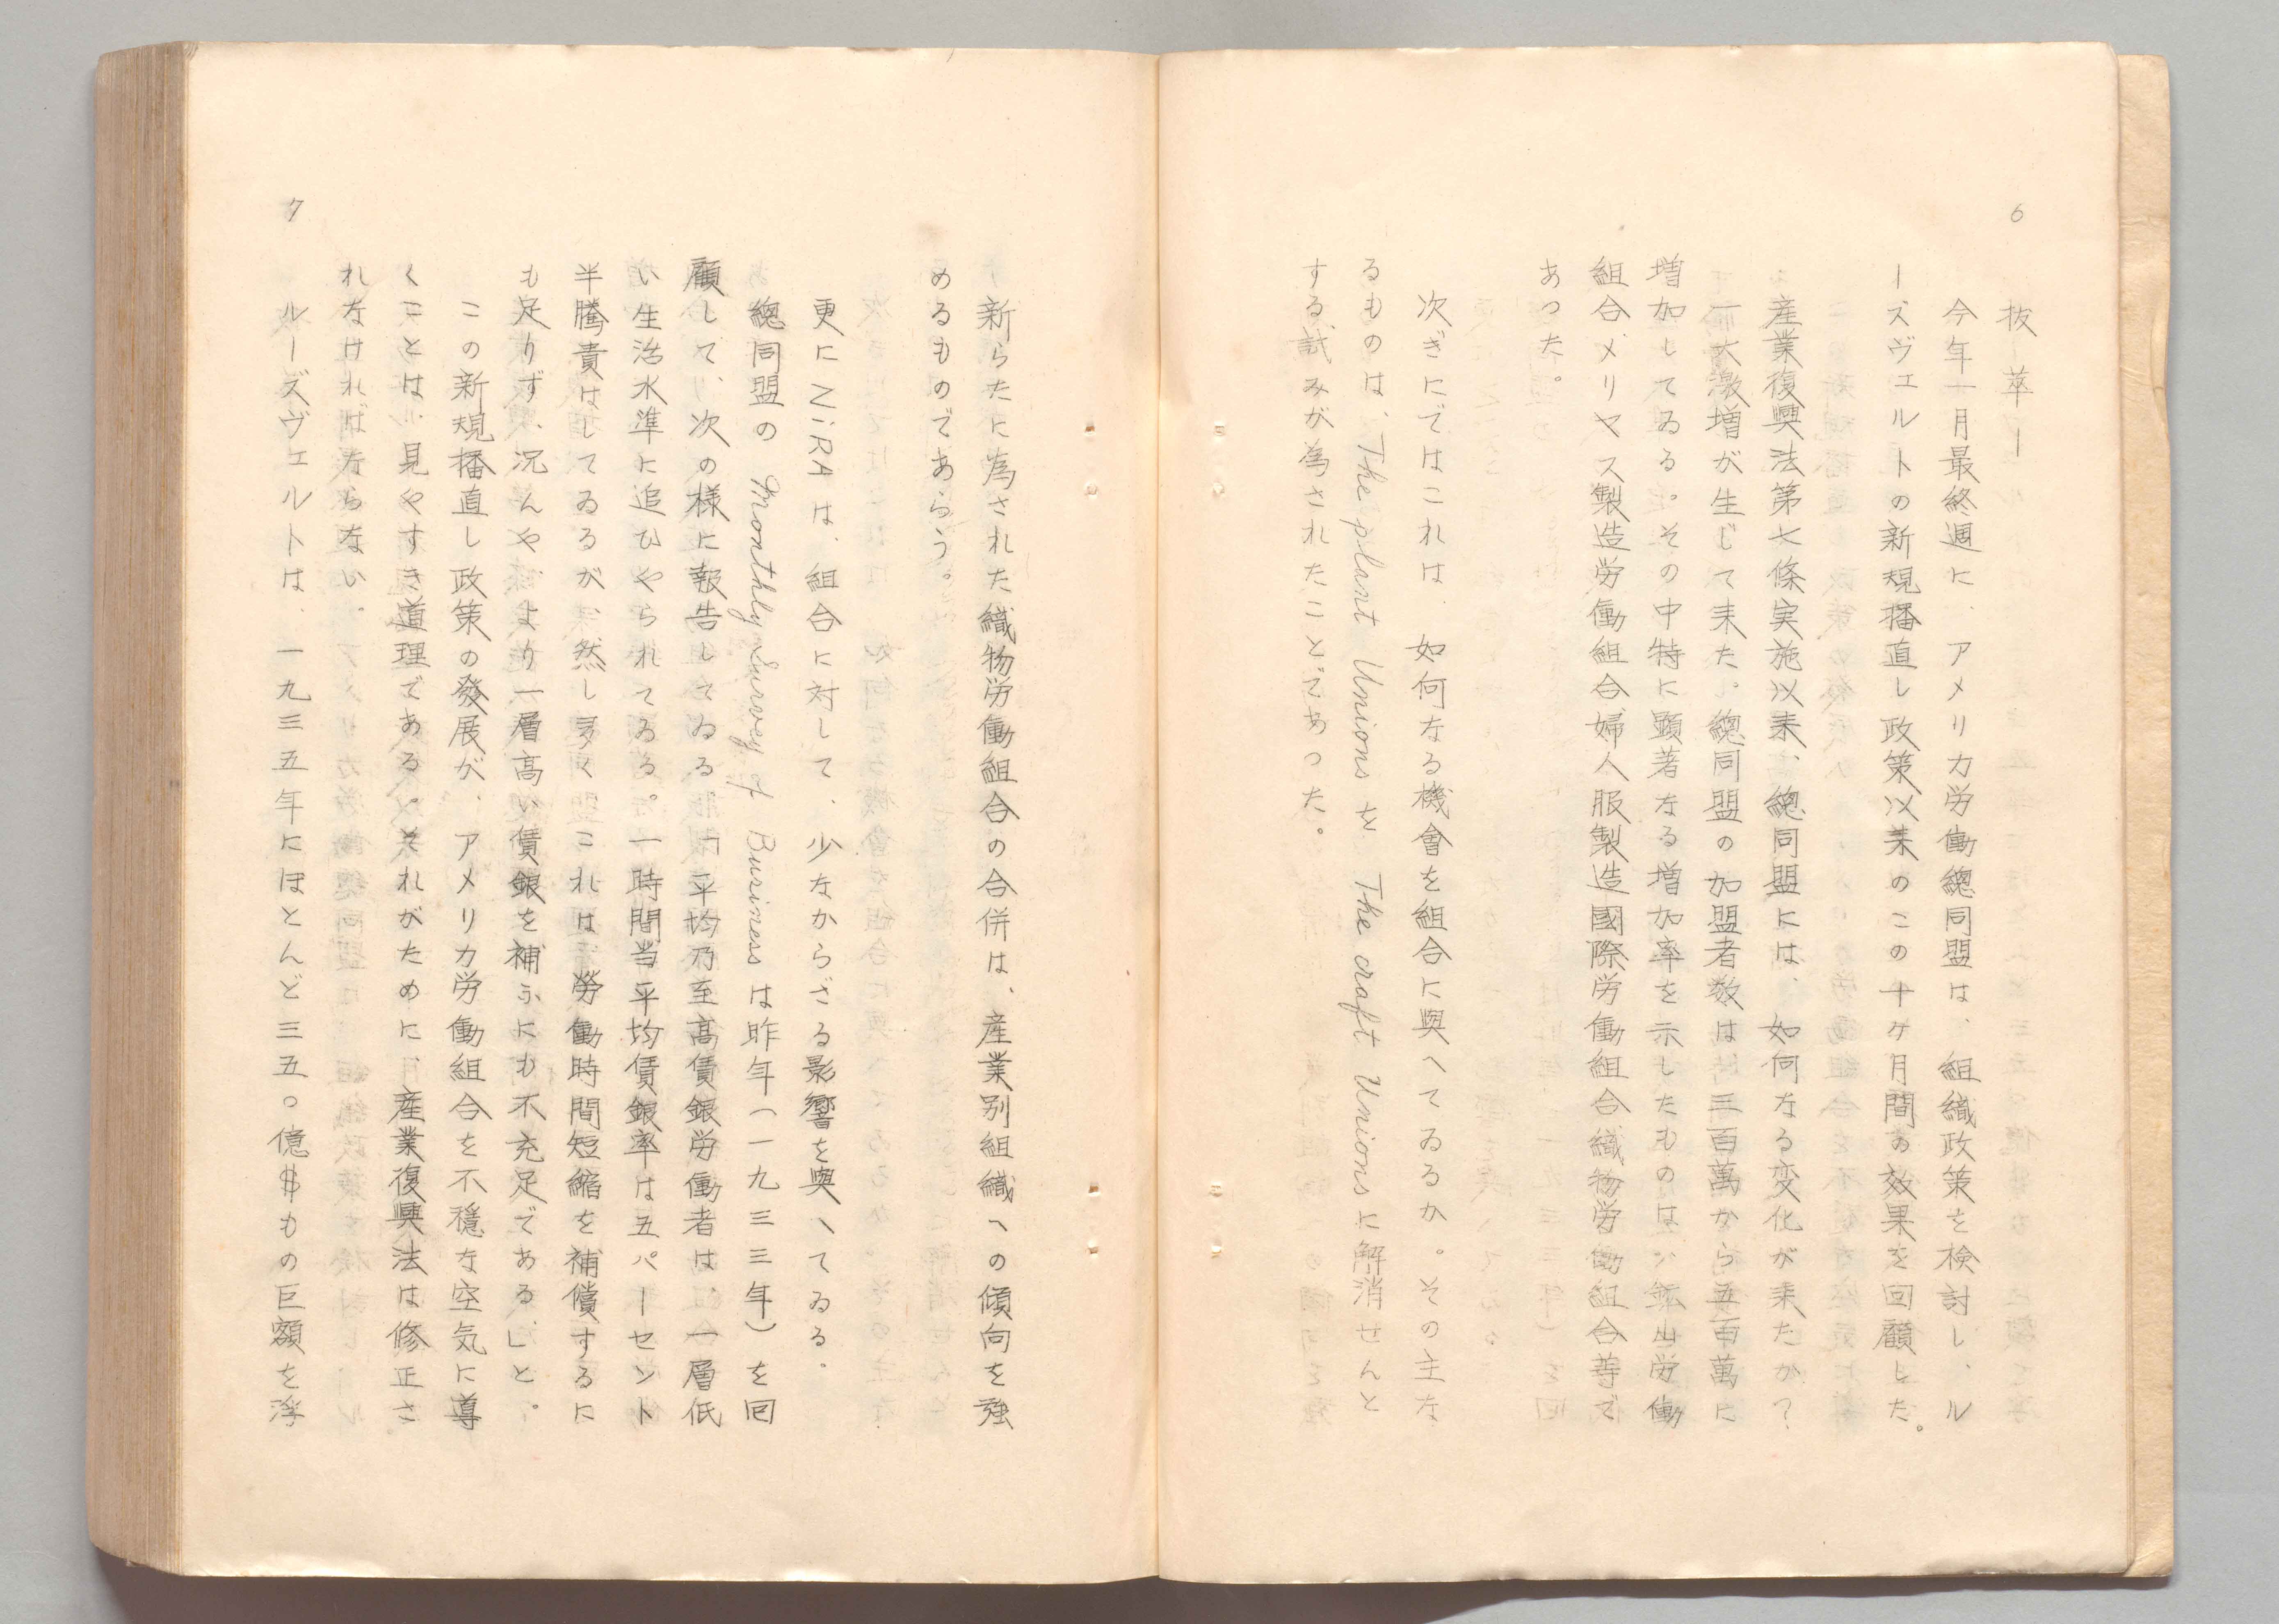 6
抜萃ー
今年一月最終週に、アメリカ労働總同盟は、組織政策を検討し、ル
ーズヴェルトの新規播直し政策以来のこの十ケ月間の效果を回顧した。
産業復興法第七條実施以来、總同盟には、如何なる変化が来たか？
一大激増が生じて来た。總同盟の加盟者数は三百萬から五百萬に
増加してゐる。その中特に顕著なる増加率を示したものは鉱山労働
組合、メリヤス製造労働組合、婦人服製造國際労働組合織物労働組合等で
あつた。
次ぎにではこれは、如何なる機會を組合に與へてゐるか。その主な
るものは、The plant Unions を The craft Unions に解消せんと
する試みが為されたことであつた。
新らたに為された織物労働組合の合併は、産業別組織への傾向を強
めるものであらう。
更に NiRA は、組合に対して、少なからざる影響を與へてゐる。
總同盟の Monthly Survey of Business は昨年（一九三三年）を回
顧して、次の様に報告してゐる。「平均乃至高賃銀労働者は、一層低
い生活水準に追ひやられてゐる。一時間当平均賃銀率は五パーセント
半騰貴はしてゐるが、然し多くこれは労働時間短縮を補償するに
も足りず、況んや、より一層高い賃銀を補ふにも不充足である」と。
この新規播直し政策の發展が、アメリカ労働組合を不穏な空気に導
くことは、見やすき道理である。それがために、産業復興法は修正さ
れなければならない。
7
ルーズヴェルトは、一九三五年にほとんど三五〇億$もの巨額を浮